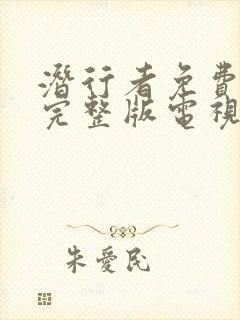 潛行者免費
完整版電視
朱愛民